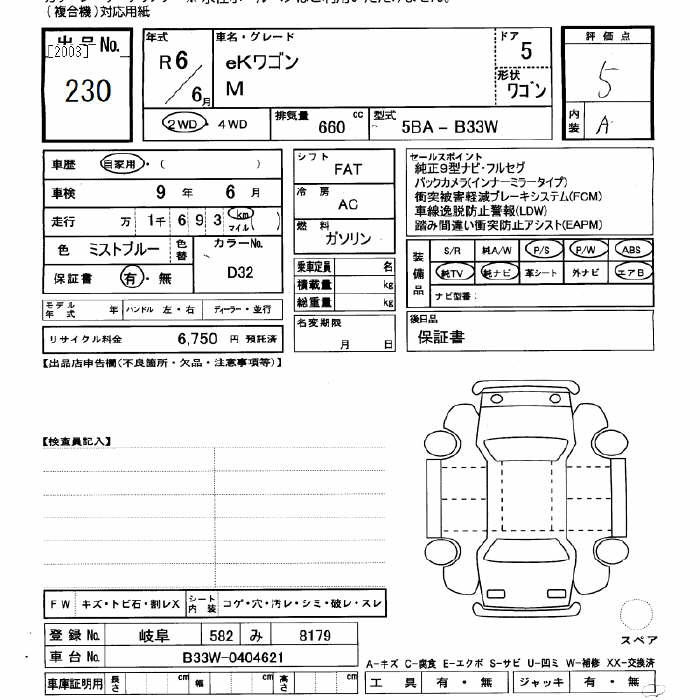 (複合機)対応用紙
出品No.
[2003]
230
年式
R6/6月
車名・グレード
eKワゴン
M
ドア
5
形状
ワゴン
評価点
5
内装
A
2WD・4WD
排気量 660 cc
型式 5BA-B33W
車歴 自家用・( )
車検 9年 6月
走行 万 1千 6 9 3 km マイル ( )
色 ミストブルー 色替
カラーNo.
D32
保証書 有・無
モデル年式 年 ハンドル 左・右 ディーラー・並行
リサイクル料金 6,750 円 預託済
シフト
FAT
冷房
AC
燃料
ガソリン
乗車定員 名
積載量 kg
総重量 kg
名変期限
月 日
セールスポイント
純正9型ナビ・フルセグ
バックカメラ(インナーミラータイプ)
衝突被害軽減ブレーキシステム(FCM)
車線逸脱防止警報(LDW)
踏み間違い衝突防止アシスト(EAPM)
装備品
S/R 純A/W P/S P/W ABS
純TV 純ナビ 革シート 外ナビ エアB
ナビ型番:
後日品
保証書
【出品店申告欄(不良箇所・欠品・注意事項等)】
【検査員記入】
FW キズ・トビ石・割レX シート内装 コゲ・穴・汚レ・シミ・破レ・スレ
登録No. 岐阜 582 み 8179
車台No. B33W-0404621
車庫証明用 長さ cm 幅 cm 高さ cm
スペア
A-キズ C-腐食 E-エクボ S-サビ U-凹ミ W-補修 XX-交換済
工具 有・無 ジャッキ 有・無